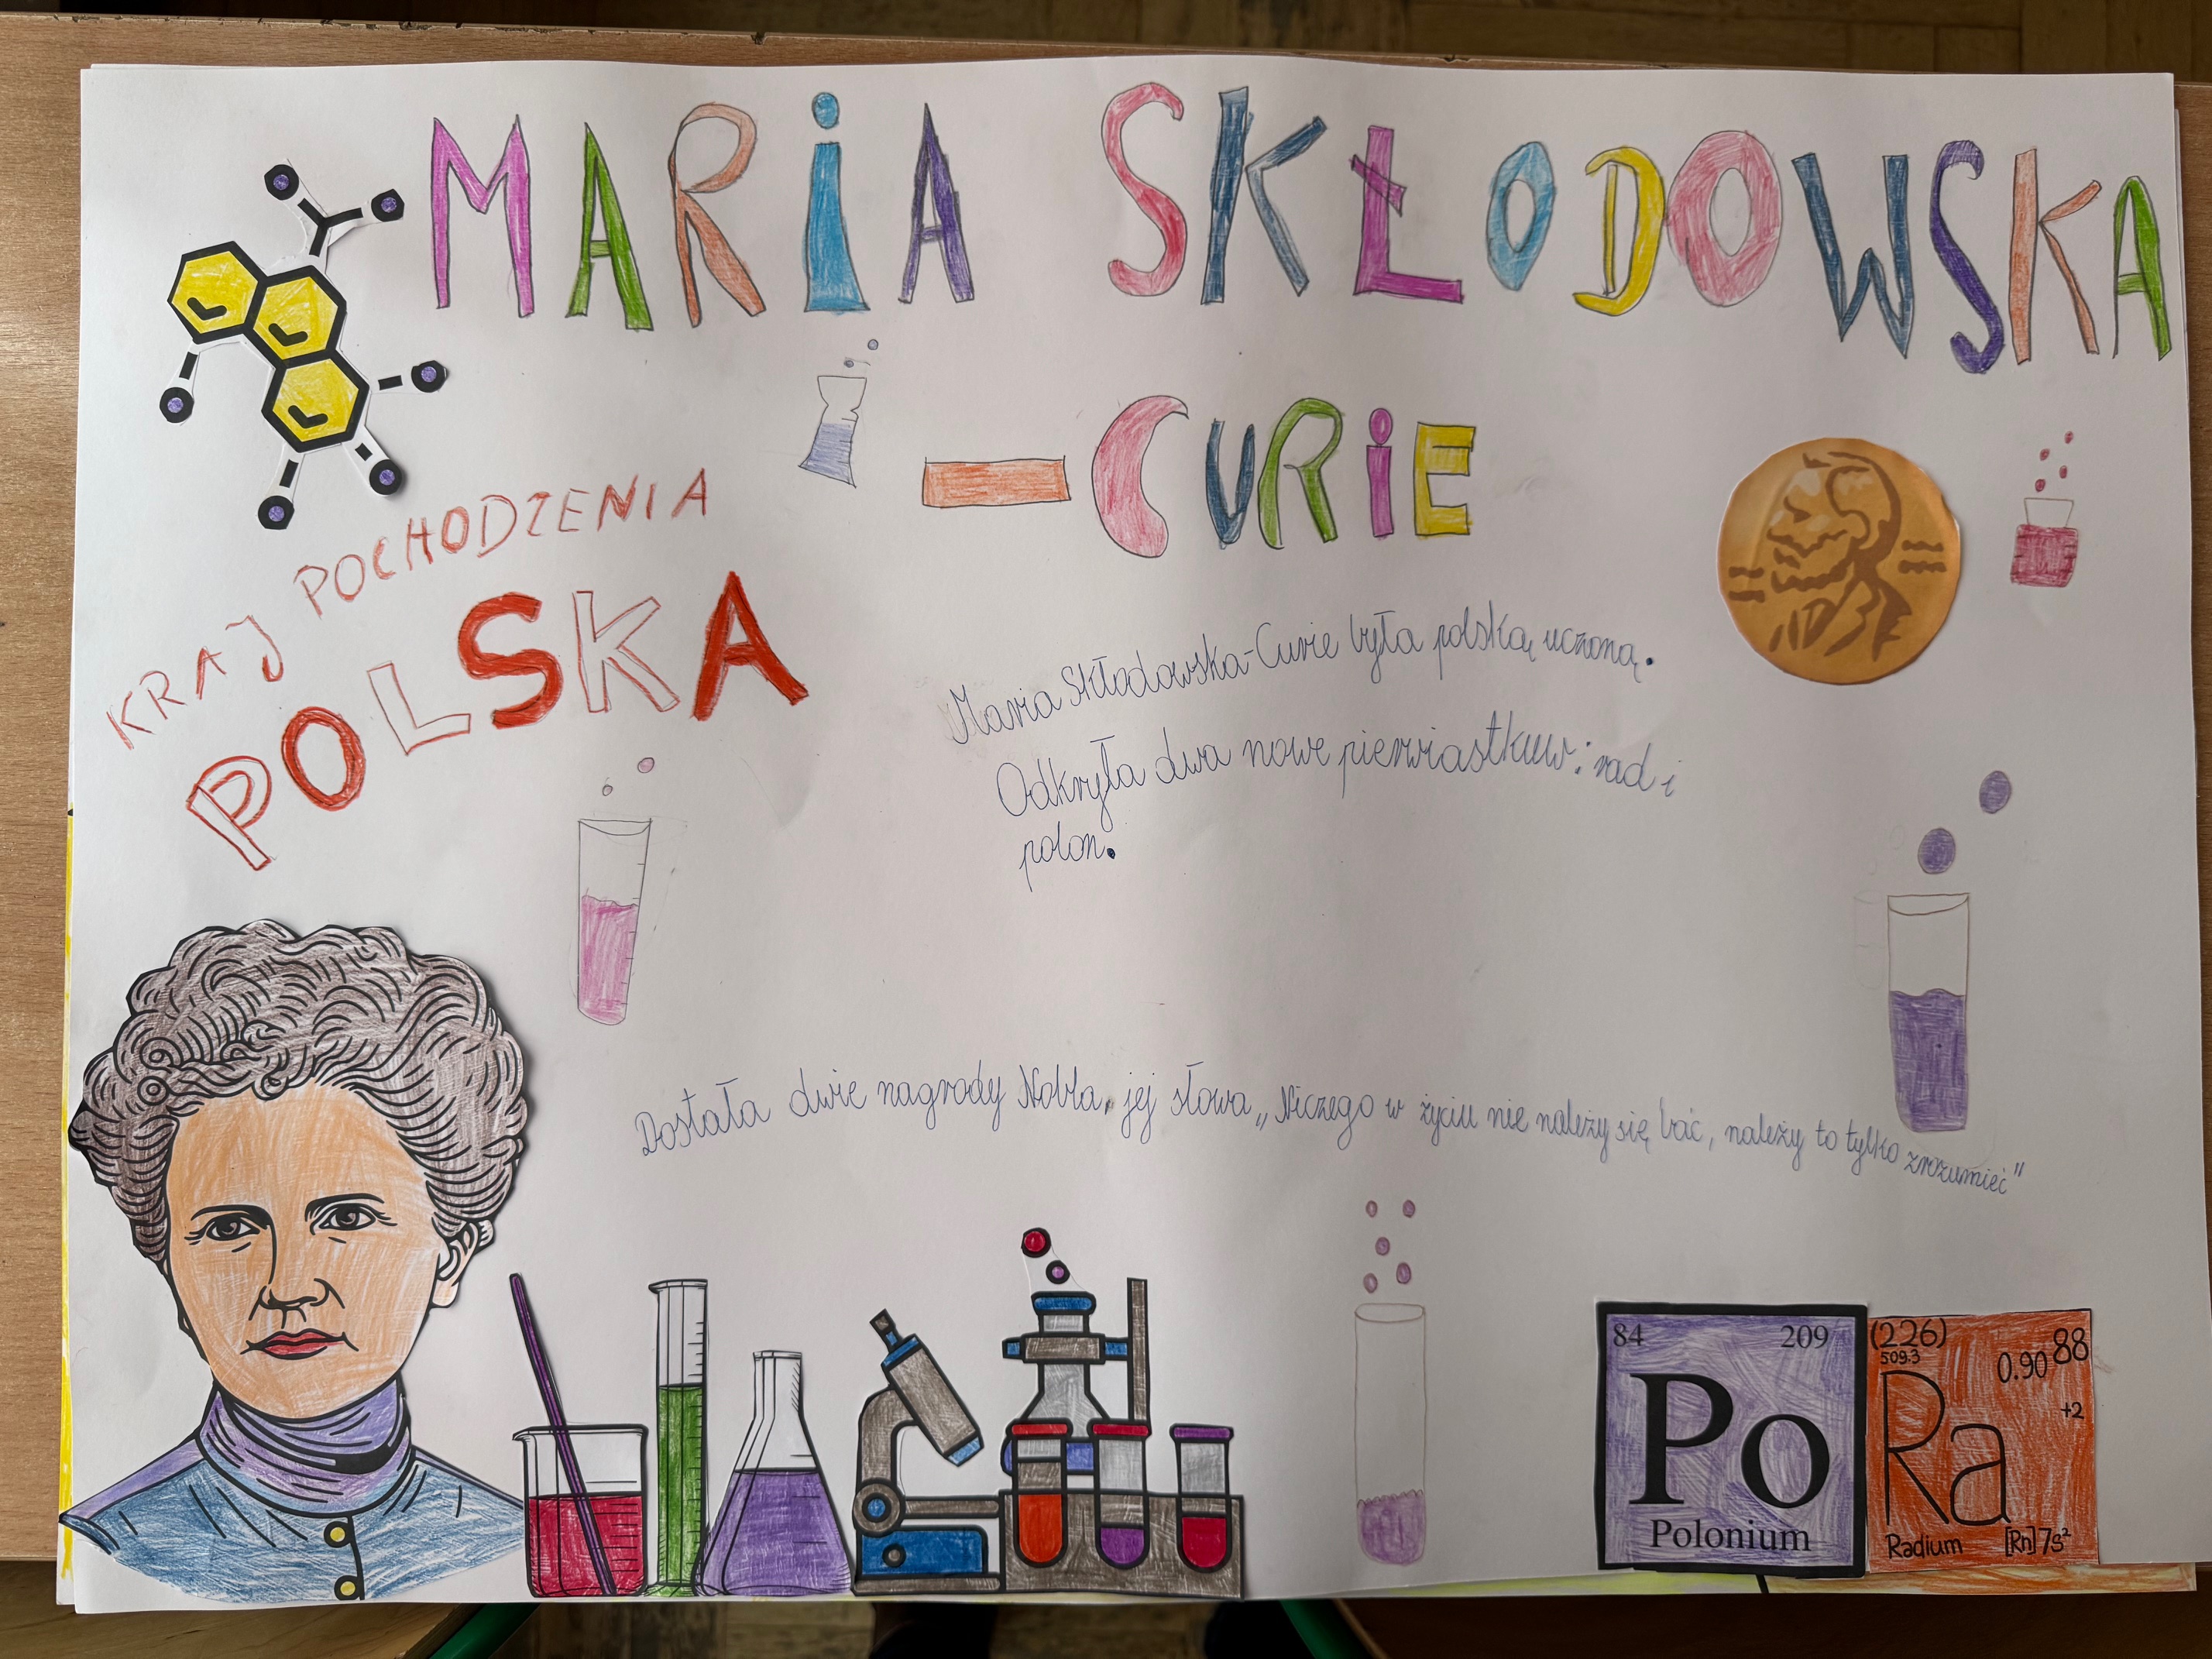 MARiA SKŁODOWSKA
-CURiE
KRAJ POCHODZENIA
POLSKA
Maria Skłodowska-Curie była polską uczoną.
Odkryła dwa nowe pierwiastkuw: rad i
polon.
Dostała dwie nagrody Nobla, jej słowa „Niczego w życiu nie należy się bać, należy to tylko zrozumieć"
84 209
Po
Polonium
(226) 88
509.3 0.90
+2
Ra
Radium [Rn] 7s²